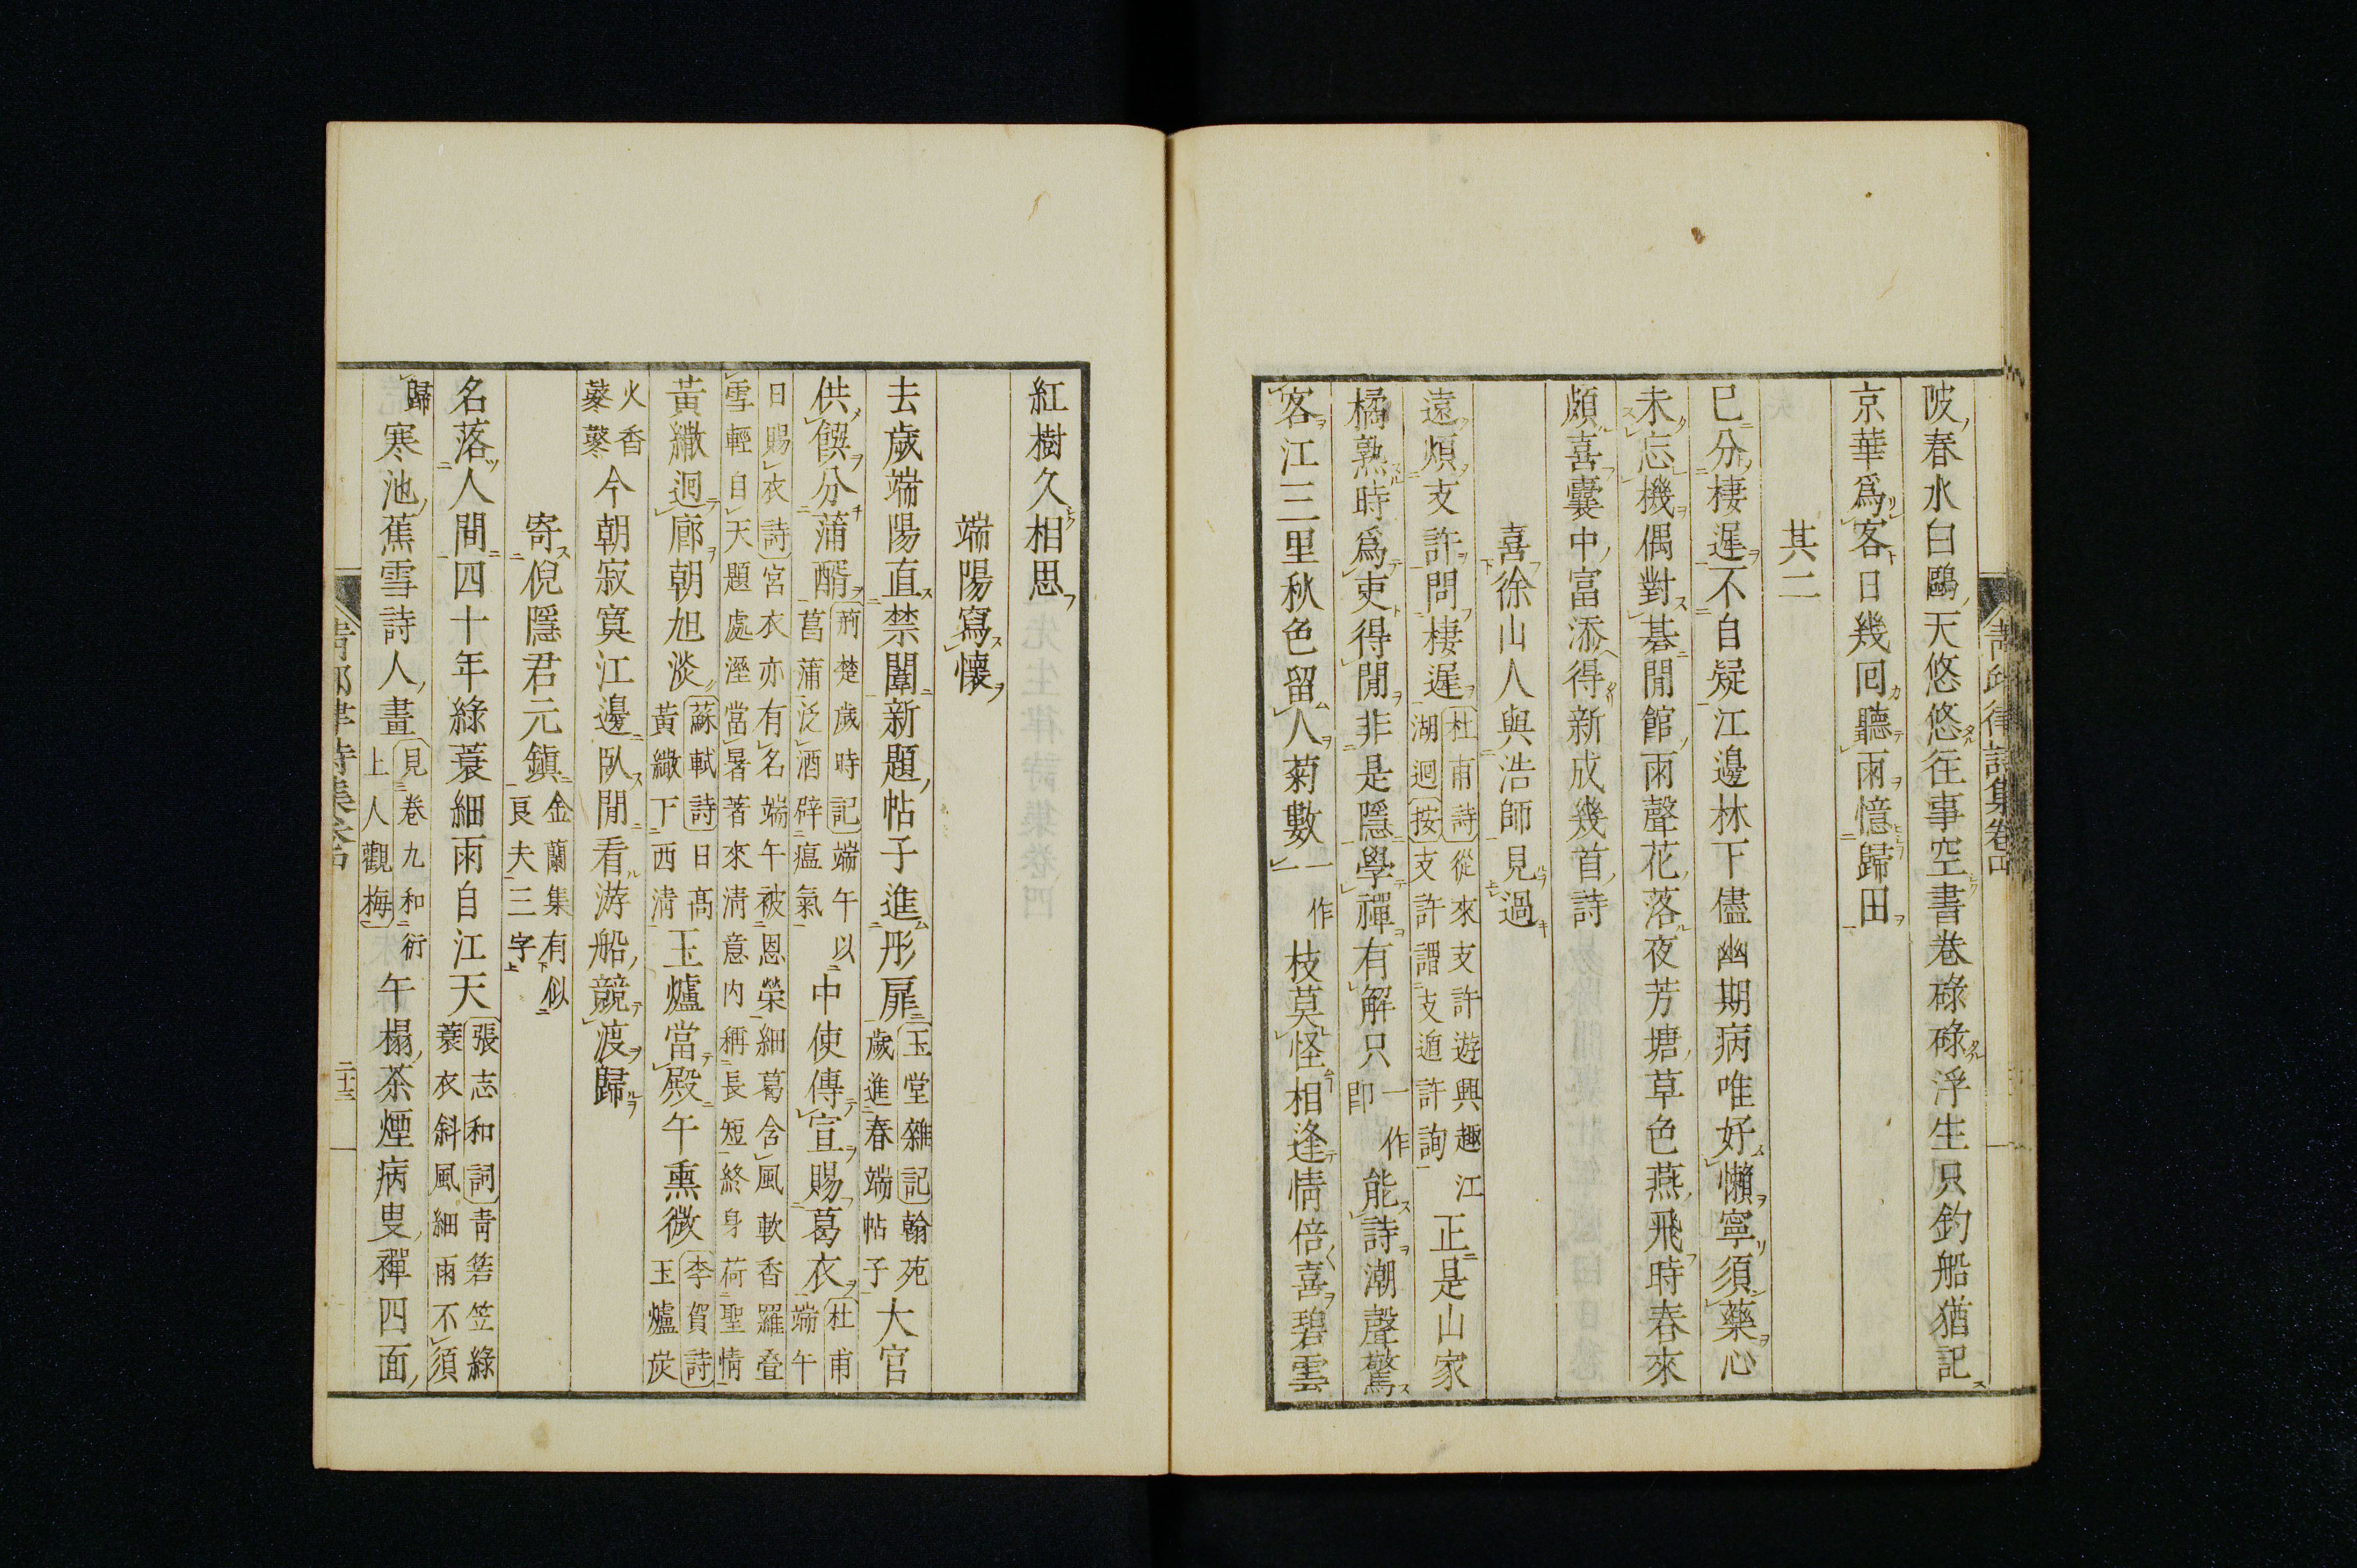 陂春水白鷗天悠悠往事空書巷碌碌浮生只釣船猶記
京華爲客日幾回聽雨憶歸田
其二
已分棲遲不自疑江邊林下儘幽期病唯好懶寧須藥心
未忘機偶對棊閒館雨聲花落夜芳塘草色燕飛時春來
頗喜囊中富添得新成幾首詩
喜徐山人與浩師見過
遠煩支許問棲遲杜甫詩從來支許遊興趣江湖迥按支許謂支遁許詢正是山家
橘熟時爲吏得閒非是隱學禪有解只一作卽能詩潮聲驚
客江三里秋色留人菊數一作枝莫怪相逢情倍喜碧雲
紅樹久相思
端陽寫懷
去歲端陽直禁闈新題帖子進彤扉玉堂雜記翰苑歲進春端帖子大官
供饌分蒲醑荊楚歲時記端午以菖蒲泛酒辟瘟氣中使傳宣賜葛衣杜甫端午
日賜衣詩宮衣亦有名端午被恩榮細葛含風軟香羅疊
雪輕自天題處溼當暑著來淸意內稱長短終身荷聖情
黃繖迥廊朝旭淡蘇軾詩日高黃繖下西淸玉爐當殿午熏微李賀詩玉爐炭
火香鼕鼕今朝寂寞江邊臥閒看游船競渡歸
寄倪隱君元鎭金蘭集有似良夫三字
名落人間四十年綠蓑細雨自江天張志和詞靑箬笠綠蓑衣斜風細雨不須
歸寒池蕉雪詩人畫見卷九和衍上人觀梅午榻茶煙病叟禪四面
靑邱律詩集卷四
二十三